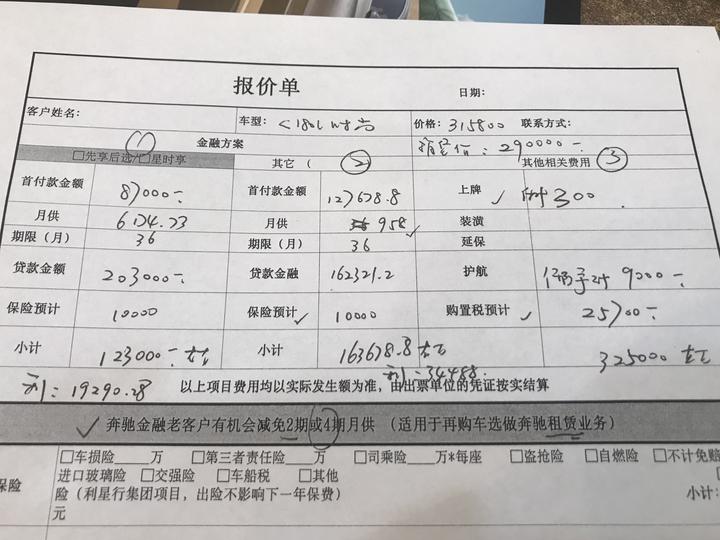 报价单 日期:
客户姓名: 车型: C180L 时尚 价格: 315800 联系方式:
① 金融方案 销售价: 290000
□先享后选/□星时享 其它( ② 其他相关费用 ③
首付款金额 87000 首付款金额 127678.8 上牌 ✓ 300
月供 6174.73 月供 958 ✓ 装潢
期限(月) 36 期限(月) 36 延保
贷款金额 203000 贷款金融 162321.2 护航 9000
保险预计 10000 保险预计 ✓ 10000 购置税预计 ✓ 25700
小计 123000 左右 小计 163678.8 左右 325000 左右
利: 19290.28 以上项目费用均以实际发生额为准,由出票单位的凭证按实结算 利: 34488
✓ 奔驰金融老客户有机会减免2期或4期月供 (适用于再购车选做奔驰租赁业务)
□车损险____万 □第三者责任险____万 □司乘险____万*每座 □盗抢险 □自燃险 □不计免赔
保险 进口玻璃险 □交强险 □车船税 □其他
险(利星行集团项目,出险不影响下一年保费) 小计:
元